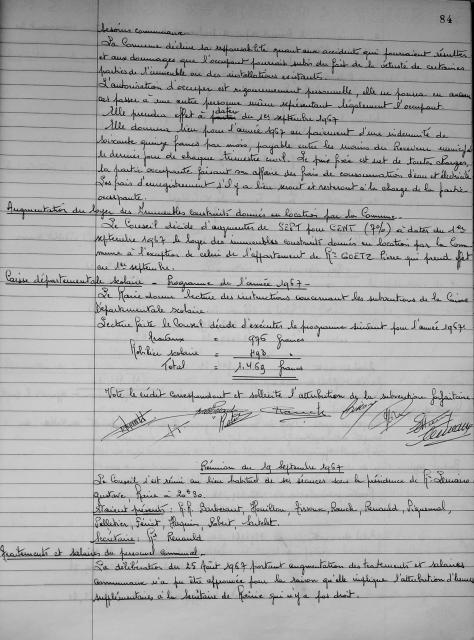 84
besoins communaux
La Commune décline sa responsabilité quant aux accidents qui pourraient résulter
et aux dommages que l'occupant pourrait subir du fait de la vétusté de certaines
parties de l'immeuble ou des installations existantes.
L'autorisation d'occuper est rigoureusement personnelle, elle ne pourra en aucun
cas passer à une autre personne même représentant légalement l'occupant
Elle prendra effet à dater du 1er septembre 1967
Elle donnera lieu pour l'année 1967 au paiement d'une indemnité de
soixante quinze francs par mois, payable entre les mains du Receveur municipal
le dernier jour de chaque trimestre civil. Le prix fixé est net de toutes charges,
la partie occupante faisant son affaire des frais de consommation d'eau et électricité
Les frais d'enregistrement s'il y a lieu seront et resteront à la charge de la partie
occupante.
Augmentation du loyer des Immeubles construits donnés en location par la Commune.
Le Conseil décide d'augmenter de SEPT pour CENT (7%) à dater du 1er
septembre 1967 le loyer des immeubles construits donnés en location par la Com
mune à l'exception de celui de l'appartement de Mr GOETZ Pierre qui prend effet
au 1er septembre.
Caisse départementale scolaire - Programme de l'année 1967 -
Le Maire donne lecture des instructions concernant les subventions de la Caisse
Départementale scolaire
Lecture faite le Conseil décide d'exécuter le programme suivant pour l'année 1967:
Travaux = 976 francs
Mobilier scolaire = 493 "
Total = 1.469 francs
Vote le crédit correspondant et sollicite l'attribution de la subvention forfaitaire
Réunion du 19 Septembre 1967
Le Conseil s'est réuni au lieu habituel de ses séances sous la présidence de Mr
Gustave, Maire à 20h30.
Etaient présents: M.M. Renauld,
Pelletier, Robert,
Secrétaire: Mr Renauld
Traitements et salaires du personnel communal -
La délibération du 25 Août 1967 portant augmentation des traitements et salaires
communaux n'a pu être approuvée pour la raison qu'elle implique l'attribution d'heures
supplémentaires à la Secrétaire de Mairie qui n'y a pas droit.